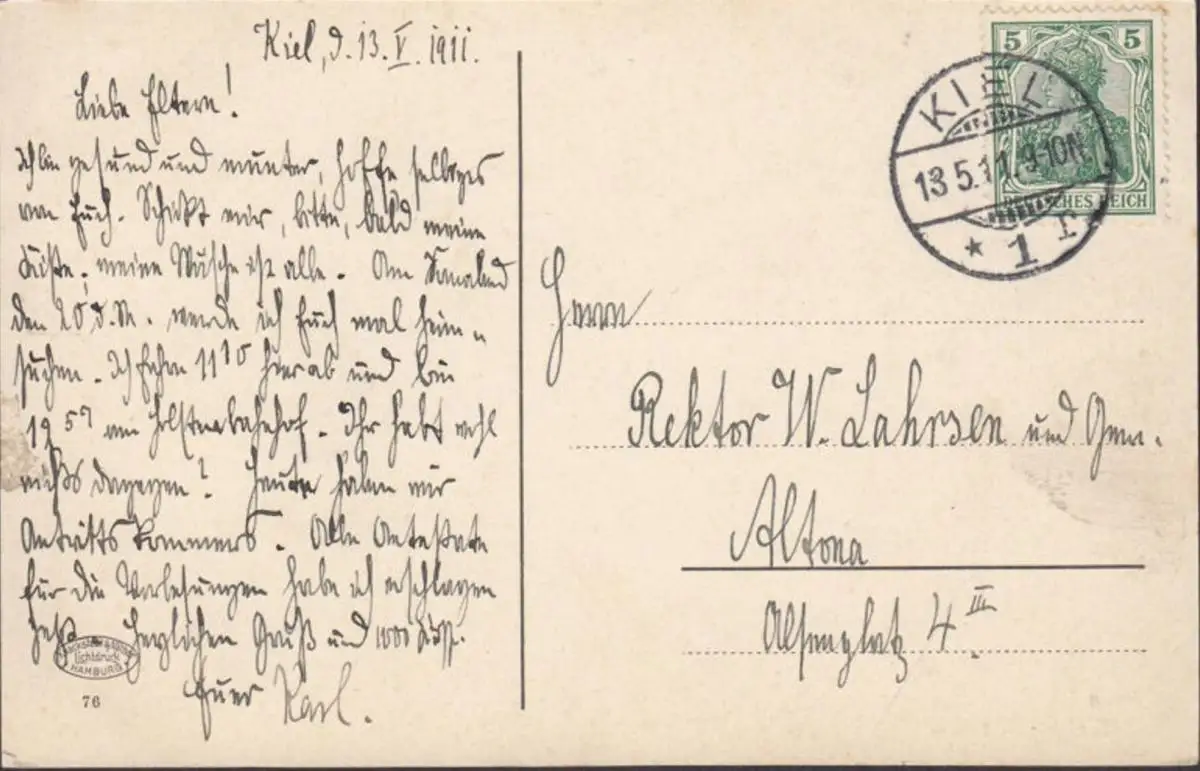 Kiel, d. 13. V. 1911.
Liebe Eltern!
Ich bin gesund und munter, hoffe selbiges
von Euch. Schickt mir, bitte, bald meine
Kiste, meine Wäsche ist alle. Am Sonnabend
den 20. d. M. werde ich Euch mal heim-
suchen. Ich fahre 11 10 hier ab und bin
1 57 am Holstenbahnhof. Ihr habt wohl
nichts dagegen? Heute haben wir
Antrittskommers. Alle Antestate
für die Vorlesungen habe ich
Herzlichen Gruß und 1000 Küsse.
Euer Karl.
Lichtdruck
HAMBURG
76
5 5
DEUTSCHES REICH
KIEL
13.5.11.9-10N.
* 1 r
Herrn
Rektor W. Lahrsen und Gem.
Altona
Alsenplatz 4 III